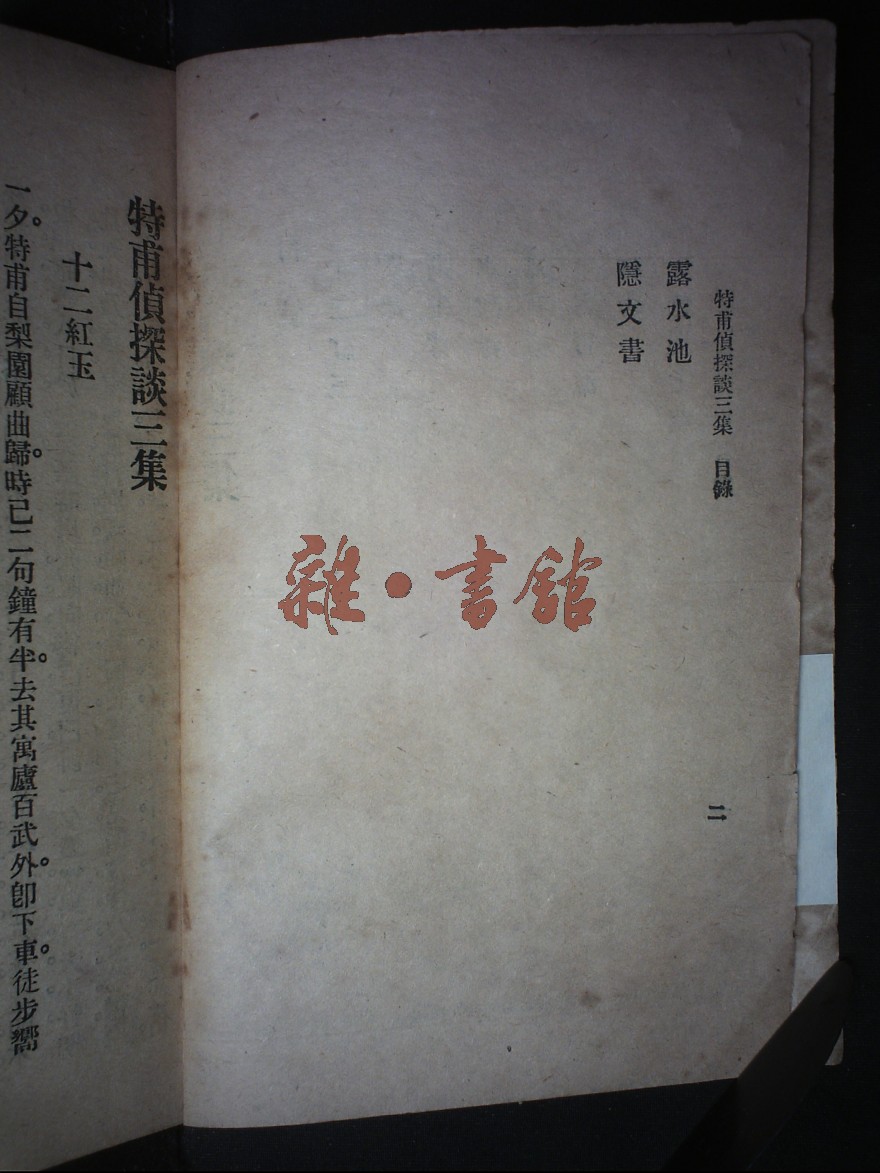 特甫偵探談三集 目錄
露水池
隱文書
二
雜·書館
特甫偵探談三集
十二紅玉
一夕。特甫自梨園顧曲歸。時已二句鐘有半。去其寓廬百武外。卽下車。徒步嚮